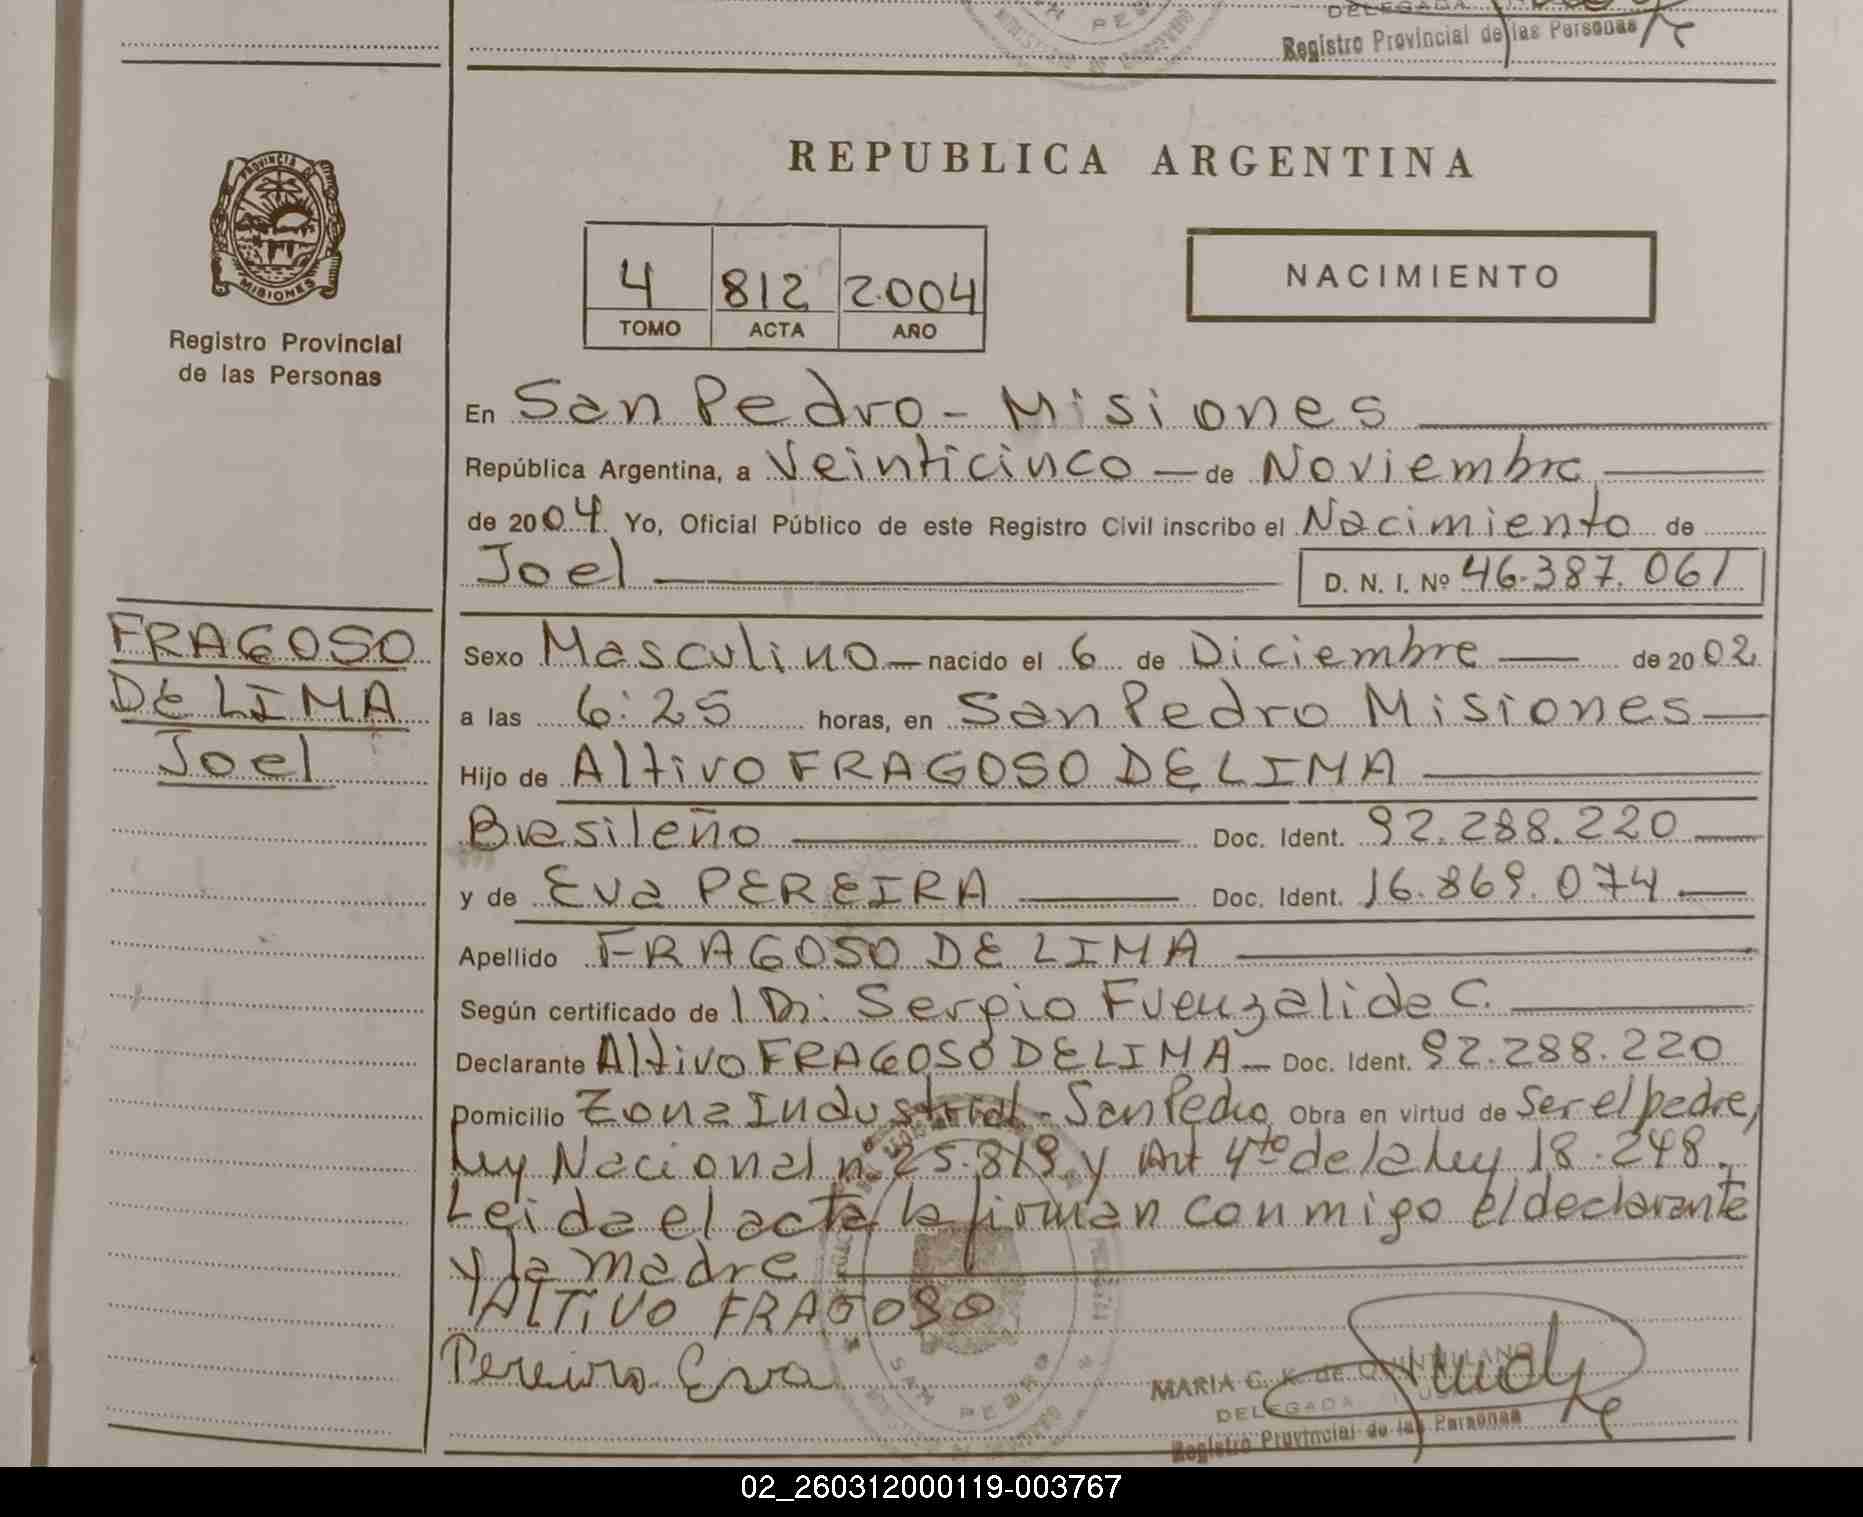 DELEGADA
Registro Provincial de las Personas
REPUBLICA ARGENTINA
PROVINCIA DE
MISIONES
Registro Provincial
de las Personas
4 812 2.004
TOMO ACTA AÑO
NACIMIENTO
En San Pedro - Misiones
República Argentina, a Veinticinco — de Noviembre
de 2004. Yo, Oficial Público de este Registro Civil inscribo el Nacimiento de
Joel D. N. I. Nº 46.387.061
FRAGOSO
DE LIMA
Joel
Sexo Masculino — nacido el 6 de Diciembre — de 2002
a las 6:25 horas, en San Pedro Misiones —
Hijo de Altivo FRAGOSO DE LIMA
Brasileño Doc. Ident. 92.288.220
y de Eva PEREIRA Doc. Ident. 16.869.074
Apellido FRAGOSO DE LIMA
Según certificado de l Dr: Sergio Fuenzalida C.
Declarante Altivo FRAGOSO DE LIMA — Doc. Ident. 92.288.220
Domicilio Zona Industrial - San Pedro Obra en virtud de Ser el padre,
Ley Nacional nº 25.819 y Art 4to de la Ley 18.248.
Leida el acta la firman conmigo el declarante
y la madre
ALTIVO FRAGOSO
Pereira Eva
SAN PEDRO
MARIA C. K. de QUINTILLANO
DELEGADA
Registro Provincial de las Personas
02_260312000119-003767